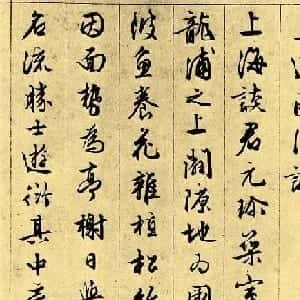 上海談君元珍築室
龍浦之上闢隙地為圃
陂魚養花雜植松竹
因面勢為亭榭日與
名流勝士遊衍其中